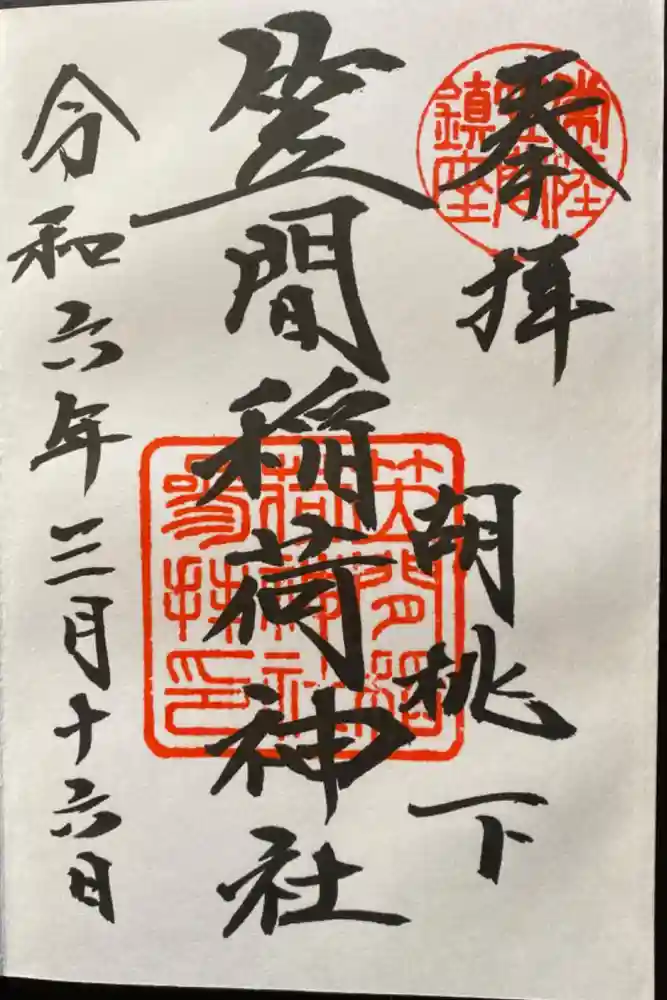 奉拝
常陸
笠間
鎮座
胡桃下
笠間稲荷神社
笠間稲
荷神社
参拝印
令和六年三月十六日